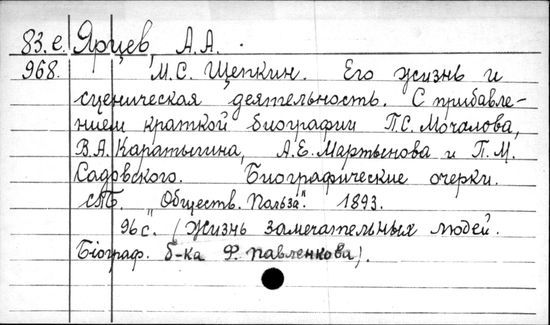 83.е. Ярцев, А.А.
968. М.С. Щепкин. Его жизнь и
сценическая деятельность. С прибавле-
нием краткой биографии П.С. Мочалова,
В.А. Каратыгина, А.Е. Мартынова и П.М.
Садовского. Биографические очерки.
СПБ. "Обществ. Польза". 1893.
96 с. (Жизнь замечательных людей.
Бiограф. б-ка Ф. Павленкова).